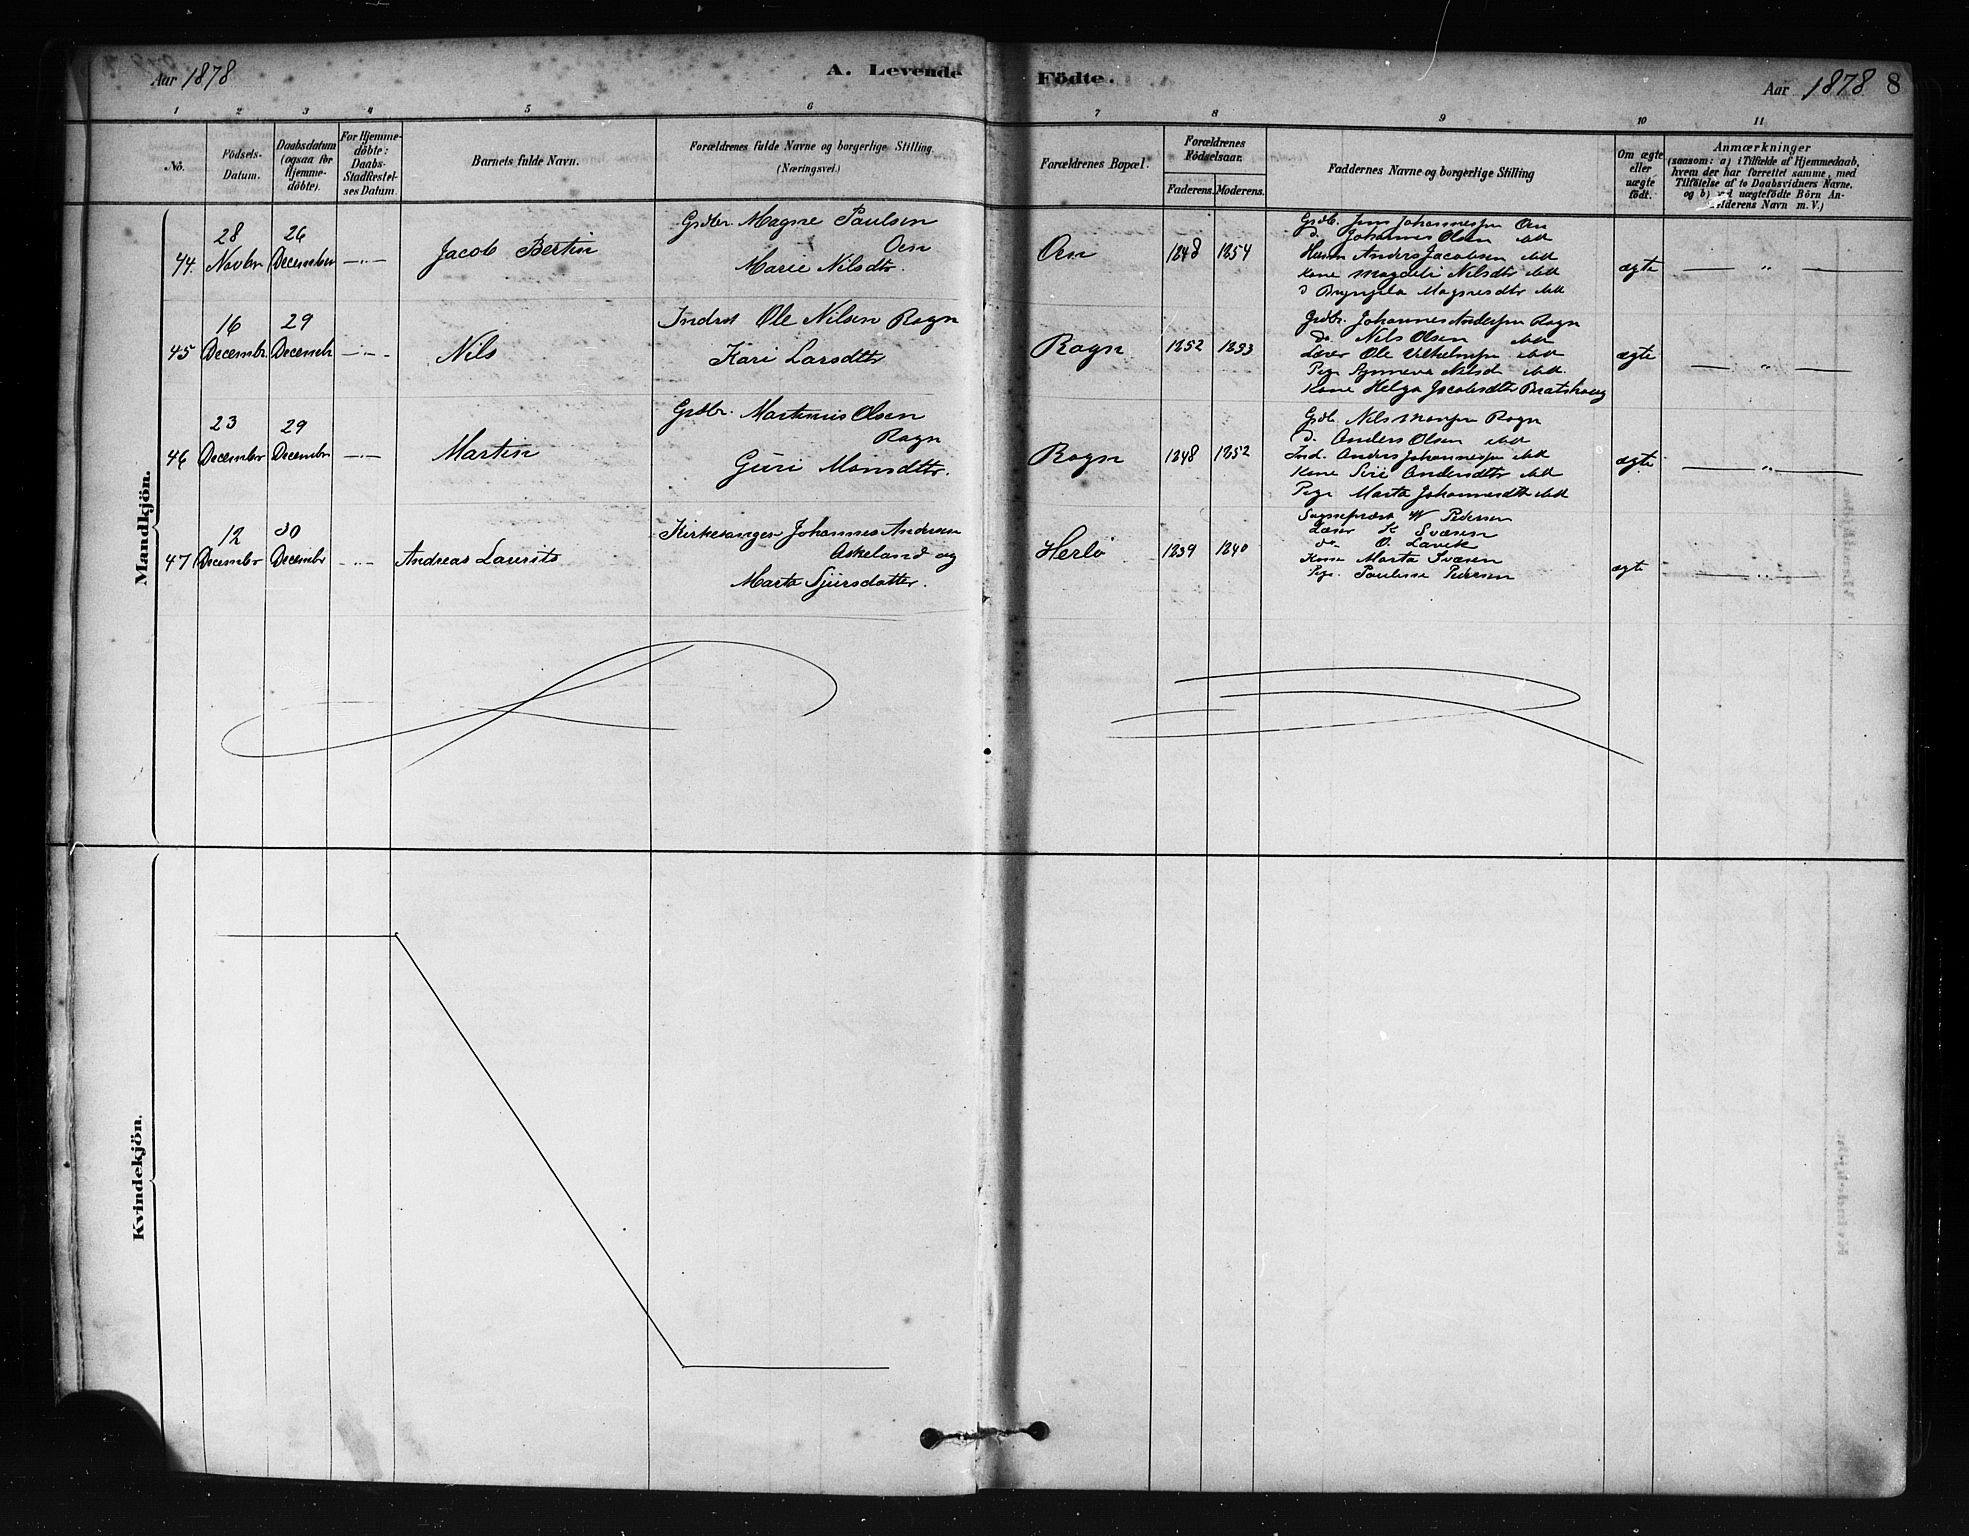 Aar 1878
A. Levende Födte.
Aar 1878 8
1 2 3 4 5 6 7 8 9 10 11
No.
Födsels-Datum.
Daabsdatum (ogsaa for Hjemme-döbte).
For Hjemme-döbte: Daabs-Stadfæstel-ses Datum.
Barnets fulde Navn.
Forældrenes fulde Navne og borgerlige Stilling.
(Næringsvei.)
Forældrenes Bopæl.
Forældrenes Födselsaar.
Faderens. Moderens.
Faddernes Navne og borgerlige Stilling
Om ægte eller uægte födt.
Anmærkninger
(saasom: a) i Tilfælde af Hjemmedaab,
hvem der har forrettet samme, med
Tilföielse af to Daabsvidners Navne.
og b) ved uægtefödte Börn An-
Faderens Navn m. V.)
Mandkjön.
44.
28 Novbr
26 December
Jacob Bertin
Grdbr Magne Paulsen
Oen
Marie Nilsdtr.
Oen
1848 1854
Grdb. Jens Johannessen Oen
d. Johannes Olsen ibid
Anders Jacobsen ibid
Kone Magdeli Nilsdtr ibid
Magnesdtr ibid
ægte
45
16 Decembr
29 Decembr
Nils
Indrst Ole Nilsen Rogn
Kari Larsdtr
Rogn
1852 1853
Grdbr. Johannes Andersen Rogn
do Nils Olsen ibid
Lærer Ole Vilhelmsen ibid
Pige Synneva Nilsd ibid.
Kone Helga Jacobsdtr Bratshaug
ægte
46
23 Decembr
29 Decembr
Martin
Grdbr. Martinus Olsen
Rogn
Guri Monsdtr.
Rogn
1848 1852
Grdb. Nils Monsen Rogn
d. Anders Olsen ibid
Ind. Anders Johannessen ibid
Kone Siri Andersdtr ibid
Pige Marta Johannesdtr ibid
ægte
47
12 Decembr
30 Decembr
Andreas Laurits
Kirkesanger Johannes Andersen
Askeland og
Marta Sjursdatter.
Herlö
1839 1840
Sognepræst W Pedersen
Lærer K Svæsen
do O. Lavik
Kone Marta Svæsen
Pige Pauline Pedersen
ægte
Kvindekjön.